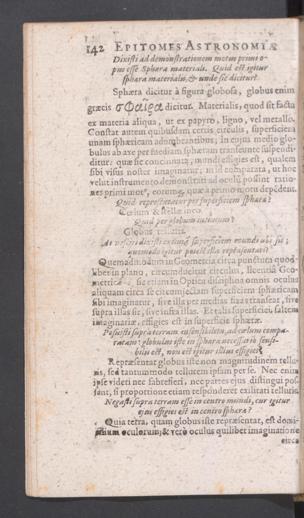 142 EPITOMES ASTRONOMIÆ
Dixisti ad demonstrationem motus primi o-
pus esse Sphæra materiali. Quid est igitur
sphæra materialis, & unde sic dicitur?
Sphæra dicitur à figura globosa, globus enim
græcis σφαῖρα dicitur. Materialis, quod sit facta
ex materia aliqua, ut ex papyro, ligno, vel metallo.
Constat autem quibusdam certis circulis, superficiem
unam sphæricam adumbrantibus; in cujus medio glo-
bulus ab axe per mediam sphæram transeunte suspendi-
ditur: quæ sic concinnata, mundi effigies est, qualem
sibi visus noster imaginatur; in id comparata, ut hoc
velut instrumento demonstrari ad oculos possint ratio-
nes primi motus, eorumque, quæ à primo motu dependent.
Quid repræsentatur per superficiem sphæræ?
Cœlum & stellæ in eo.
Quid per globum intimum?
Globus telluris.
At nescire dixisti extimæ superficiem mundi ubi sit;
quomodo igitur potest illa repræsentari?
Quemadmodum in Geometria circa punctum quod-
libet in plano, circumducitur circulus, licentia Geo-
metrica; sic etiam in Optica disciplina omnis oculus
aliquam circa se circumjectam superficiem sphæricam
sibi imaginatur, sive illa per medias fixas transeat, sive
supra illas sit, sive infra illas. Et talis superficiei, saltem
imaginariæ, effigies est in superficie sphæræ.
Posuisti supra terram esse insensibilem, ad cœlum compa-
ratam: globulus iste in sphæra necessario sensi-
bilis est, non est igitur illius effigies?
Repræsentat globus iste non magnitudinem tellu-
ris, sed tantummodo tellurem ipsam per se. Nec enim
ipse videri nec fabrefieri, nec partes ejus distingui pos-
sent, si proportione etiam responderet exilitati telluris.
Negasti supra terram esse in centro mundi, cur igitur
ejus effigies est in centro sphæræ?
Quia terra, quam globus iste repræsentat, est domi-
cilium oculorum; & verò oculus quilibet imaginatione
circa